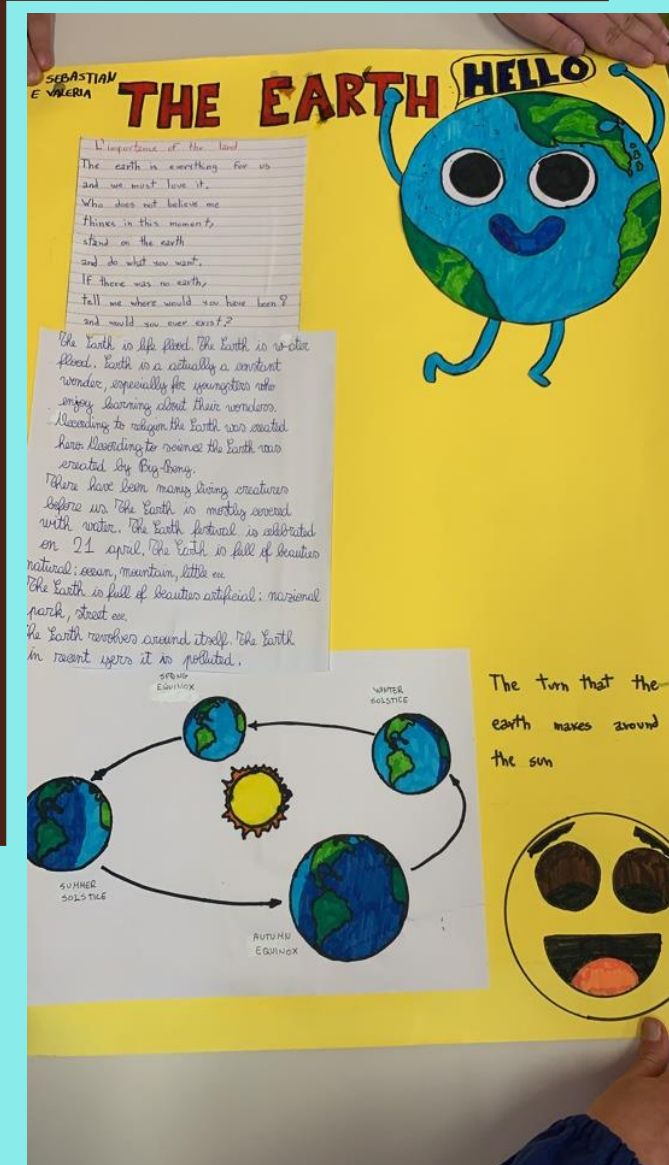 SEBASTIAN
E VALERIA
THE EARTH
HELLO
L'importance of the land
The earth is everything for us
and we must love it.
Who does not believe me
thinks in this moment,
stand on the earth
and do what you want.
If there was no earth,
tell me where would you have been?
and would you ever exist?
The Earth is life flood. The Earth is water
flood. Earth is a actually a constant
wonder, especially for youngsters who
enjoy learning about their wonders.
According to religion the Earth was created
hero. According to science the Earth was
created by Big-Beng.
There have been many living creatures
before us. The Earth is mostly covered
with water. The Earth festival is celebrated
on 21 april. The Earth is full of beauties
natural; ocean, mountain, little ecc
The Earth is full of beauties artificial: nazional
park, street ecc.
The Earth revolves around itself. The Earth
in recent yers it is polluted.
SPRING
EQUINOX
WINTER
SOLSTICE
SUMMER
SOLSTICE
AUTUMN
EQUINOX
The turn that the
earth makes around
the sun